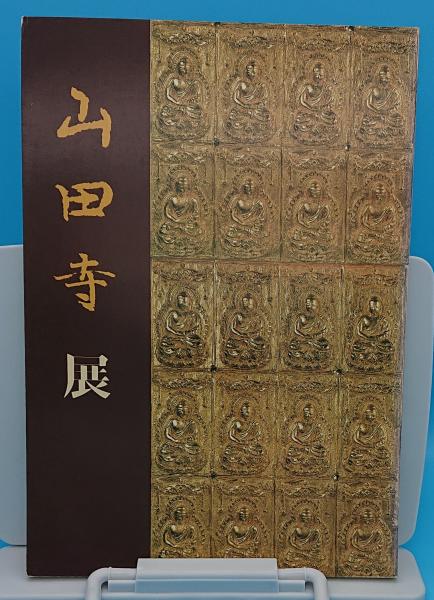 山田寺展